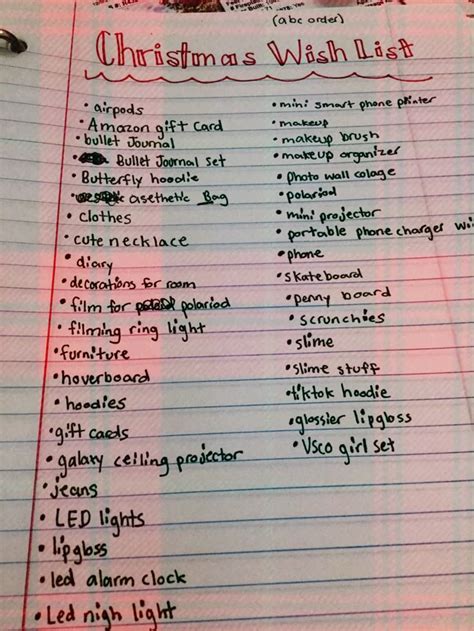 (abc order)
Christmas Wish List
• airpods
• Amazon gift Card
• bullet Journal
• Bullet Journal set
• Butterfly hoodie
• asethetic Bag
• clothes
• cute necklace
• diary
• decorations for room
• film for polariod
• filming ring light
• furniture
• hoverboard
• hoodies
• gift cards
• galaxy ceiling projector
• jeans
• LED lights
• lipgloss
• led alarm clock
• Led nigh light
• mini smart phone printer
• makeup
• makeup brush
• makeup organizer
• photo wall colage
• polariod
• mini projector
• portable phone charger wi
• phone
• skateboard
• penny board
• scrunchies
• slime
• slime stuff
• tiktok hoodie
• glossier lipgloss
• Vsco girl set